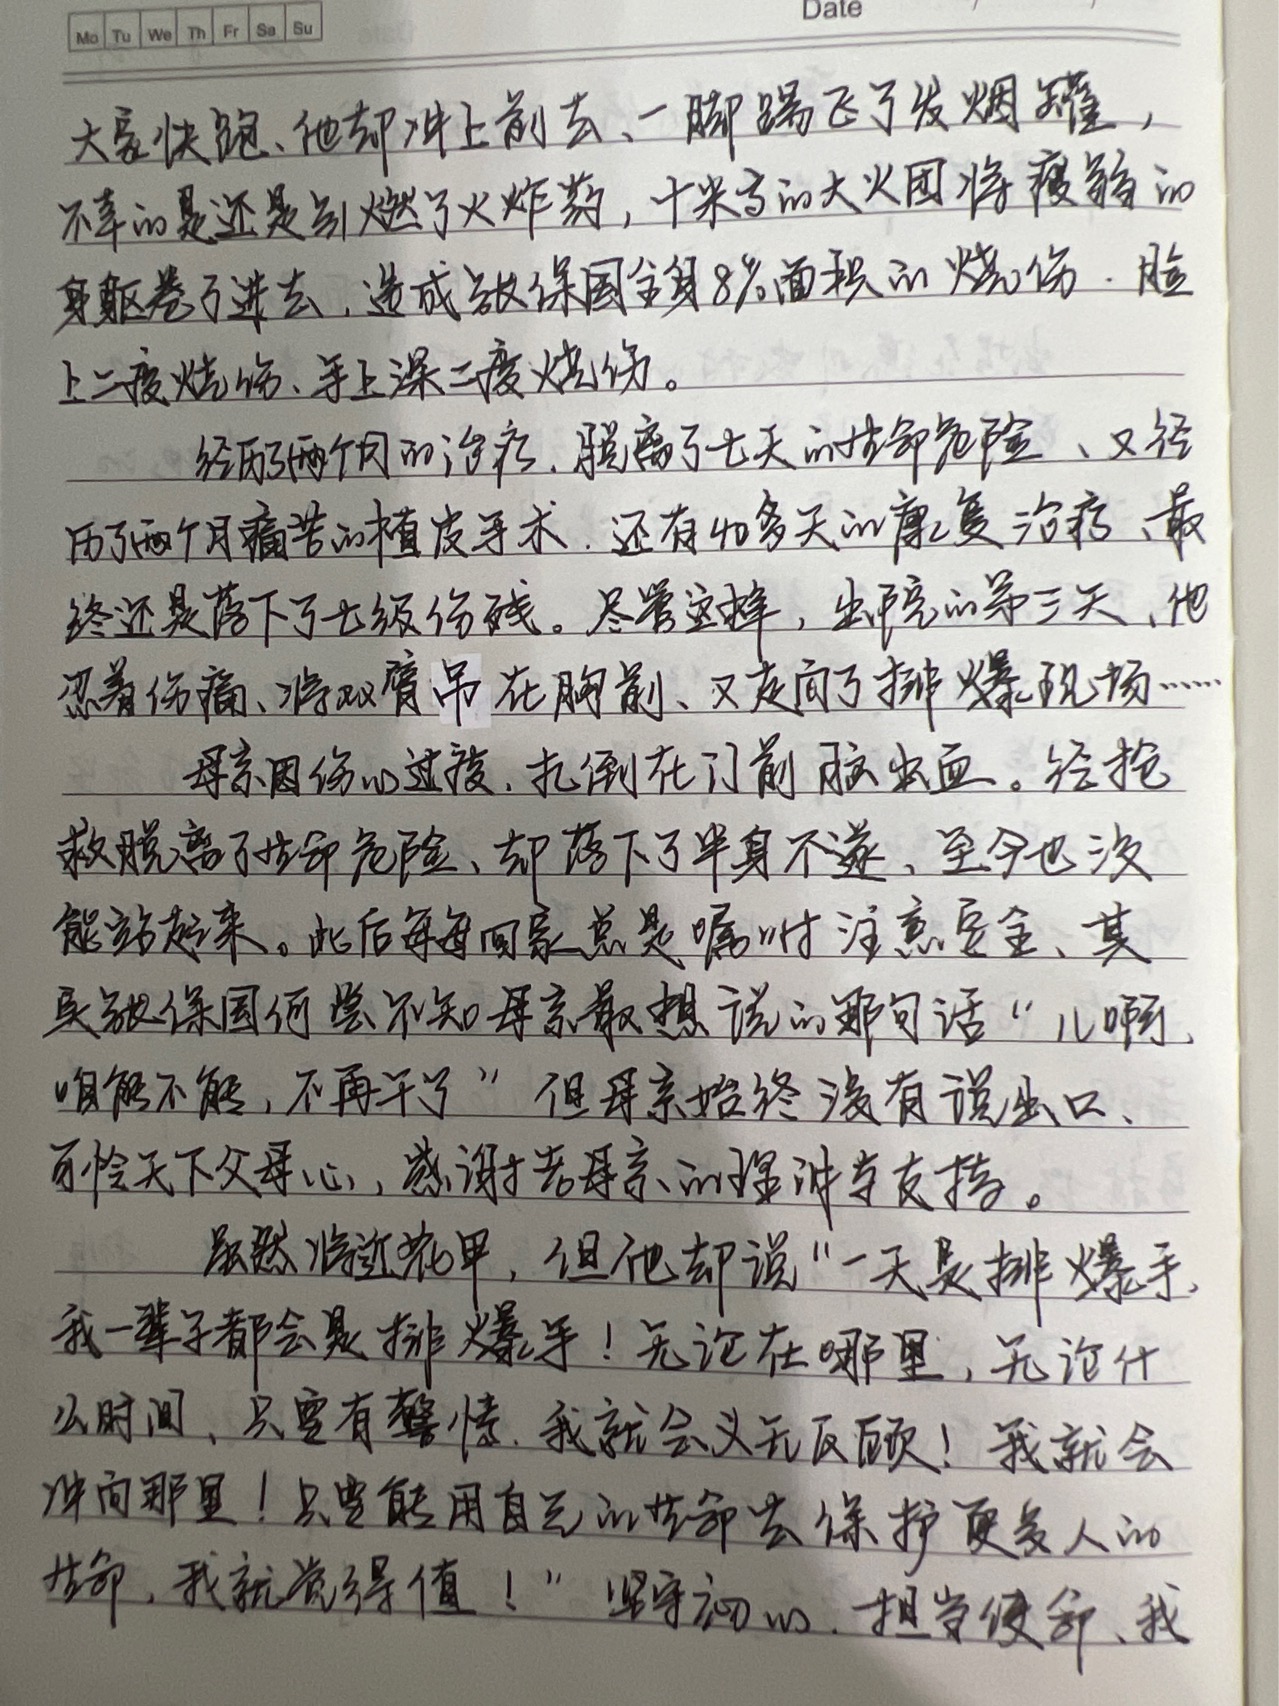 Mo Tu We Th Fr Sa Su
Date / /
大家快跑、他却冲上前去、一脚踢飞了发烟罐，
不幸的是还是引燃了火炸药，十米高的大火团将瘦弱的
身躯卷了进去，造成敬保国全身8%面积的烧伤．脸
上二度烧伤、手上深二度烧伤。
经历了两个月的治疗．脱离了七天的生命危险、又经
历了两个月痛苦的植皮手术．还有40多天的康复治疗、最
终还是落下了七级伤残。尽管这样，出院的第三天、他
忍着伤痛、将双臂吊在胸前、又走向了排爆现场……
母亲因伤心过度．扎倒在门前脑出血。经抢
救脱离了生命危险、却落下了半身不遂、至今也没
能站起来。此后每每回家总是嘱咐注意安全、其
实敬保国何尝不知母亲最想说的那句话“儿啊、
咱能不能，不再干了”但母亲始终没有说出口、
可怜天下父母心，感谢老母亲的理解与支持。
虽然临近花甲，但他却说“一天是排爆手、
我一辈子都会是排爆手！无论在哪里，无论什
么时间、只要有警情．我就会义无反顾！我就会
冲向那里！只要能用自己的生命去保护更多人的
生命，我就觉得值！”坚守初心．担当使命、我